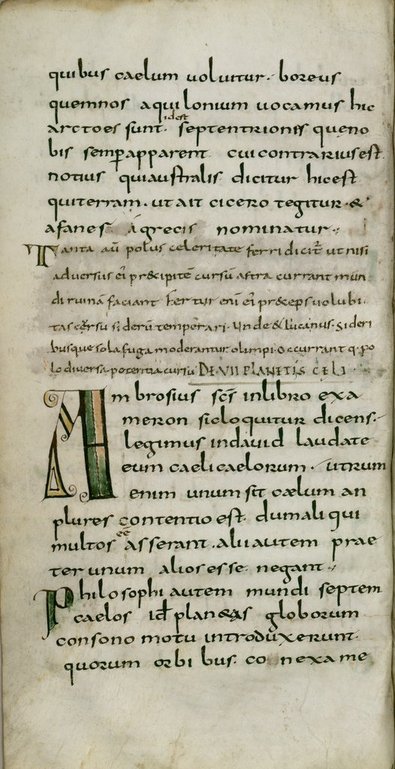 quibus caelum uoluitur. boreus
quem nos aquilonium uocamus hic
arctoes sunt. idest septentriones que no
bis semper apparent cui contrarius est
notius qui australis dicitur hic est
qui terram. ut ait cicero tegitur. &
afanes a grecis nominatur.
Tanta aū polus celeritate ferri dicit ut nisi
aduersus ei precipitē cursū astra currant mun
di ruinā faciant fertur eni ei preceps uolubi
tas cursu siderū temperari. unde & lucanus. sideri
busque sola fuga moderantur olimpi occurrunt q. po
lo diuersa potentia cursu DE VII PLANETIS CELI
Ambrosius scs in libro exa
meron sic loquitur dicens.
legimus in dauid laudate
eum caeli caelorum. utrum
enim unum sit caelum an
plures contentio est. dum alii qui
multos eē asserant. alii autem prae
ter unum alios esse negant.
Philosophi autem mundi septem
caelos id planetas globorum
consono motu introduxerunt.
quorum orbibus. conexa me